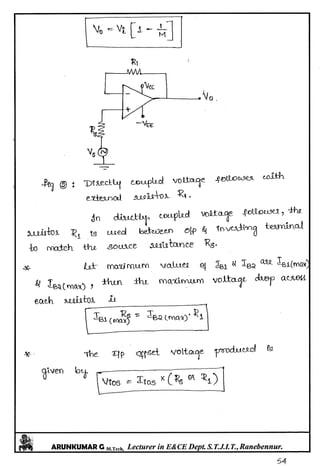 Vo = Vi [1 - 1/M]
R1
+VCC
Vo
-VEE
Rs
Vs
fig ⑤ : Directly coupled voltage follower with
external resistor R1.
In directly, coupled voltage follower, the
resistor R1 is used between o/p & inverting terminal
to match the source resistance Rs.
* Let maximum values of IB1 & IB2 are IB1(max)
& IB2(max), then the maximum voltage drop across
each resistor is
IB1(max) Rs = IB2(max) . R1
* The I/p offset voltage produced is
given by
Vios = Iios × (Rs or R1)
ARUNKUMAR G M.Tech, Lecturer in E&CE Dept. S.T.J.I.T., Ranebennur.
54